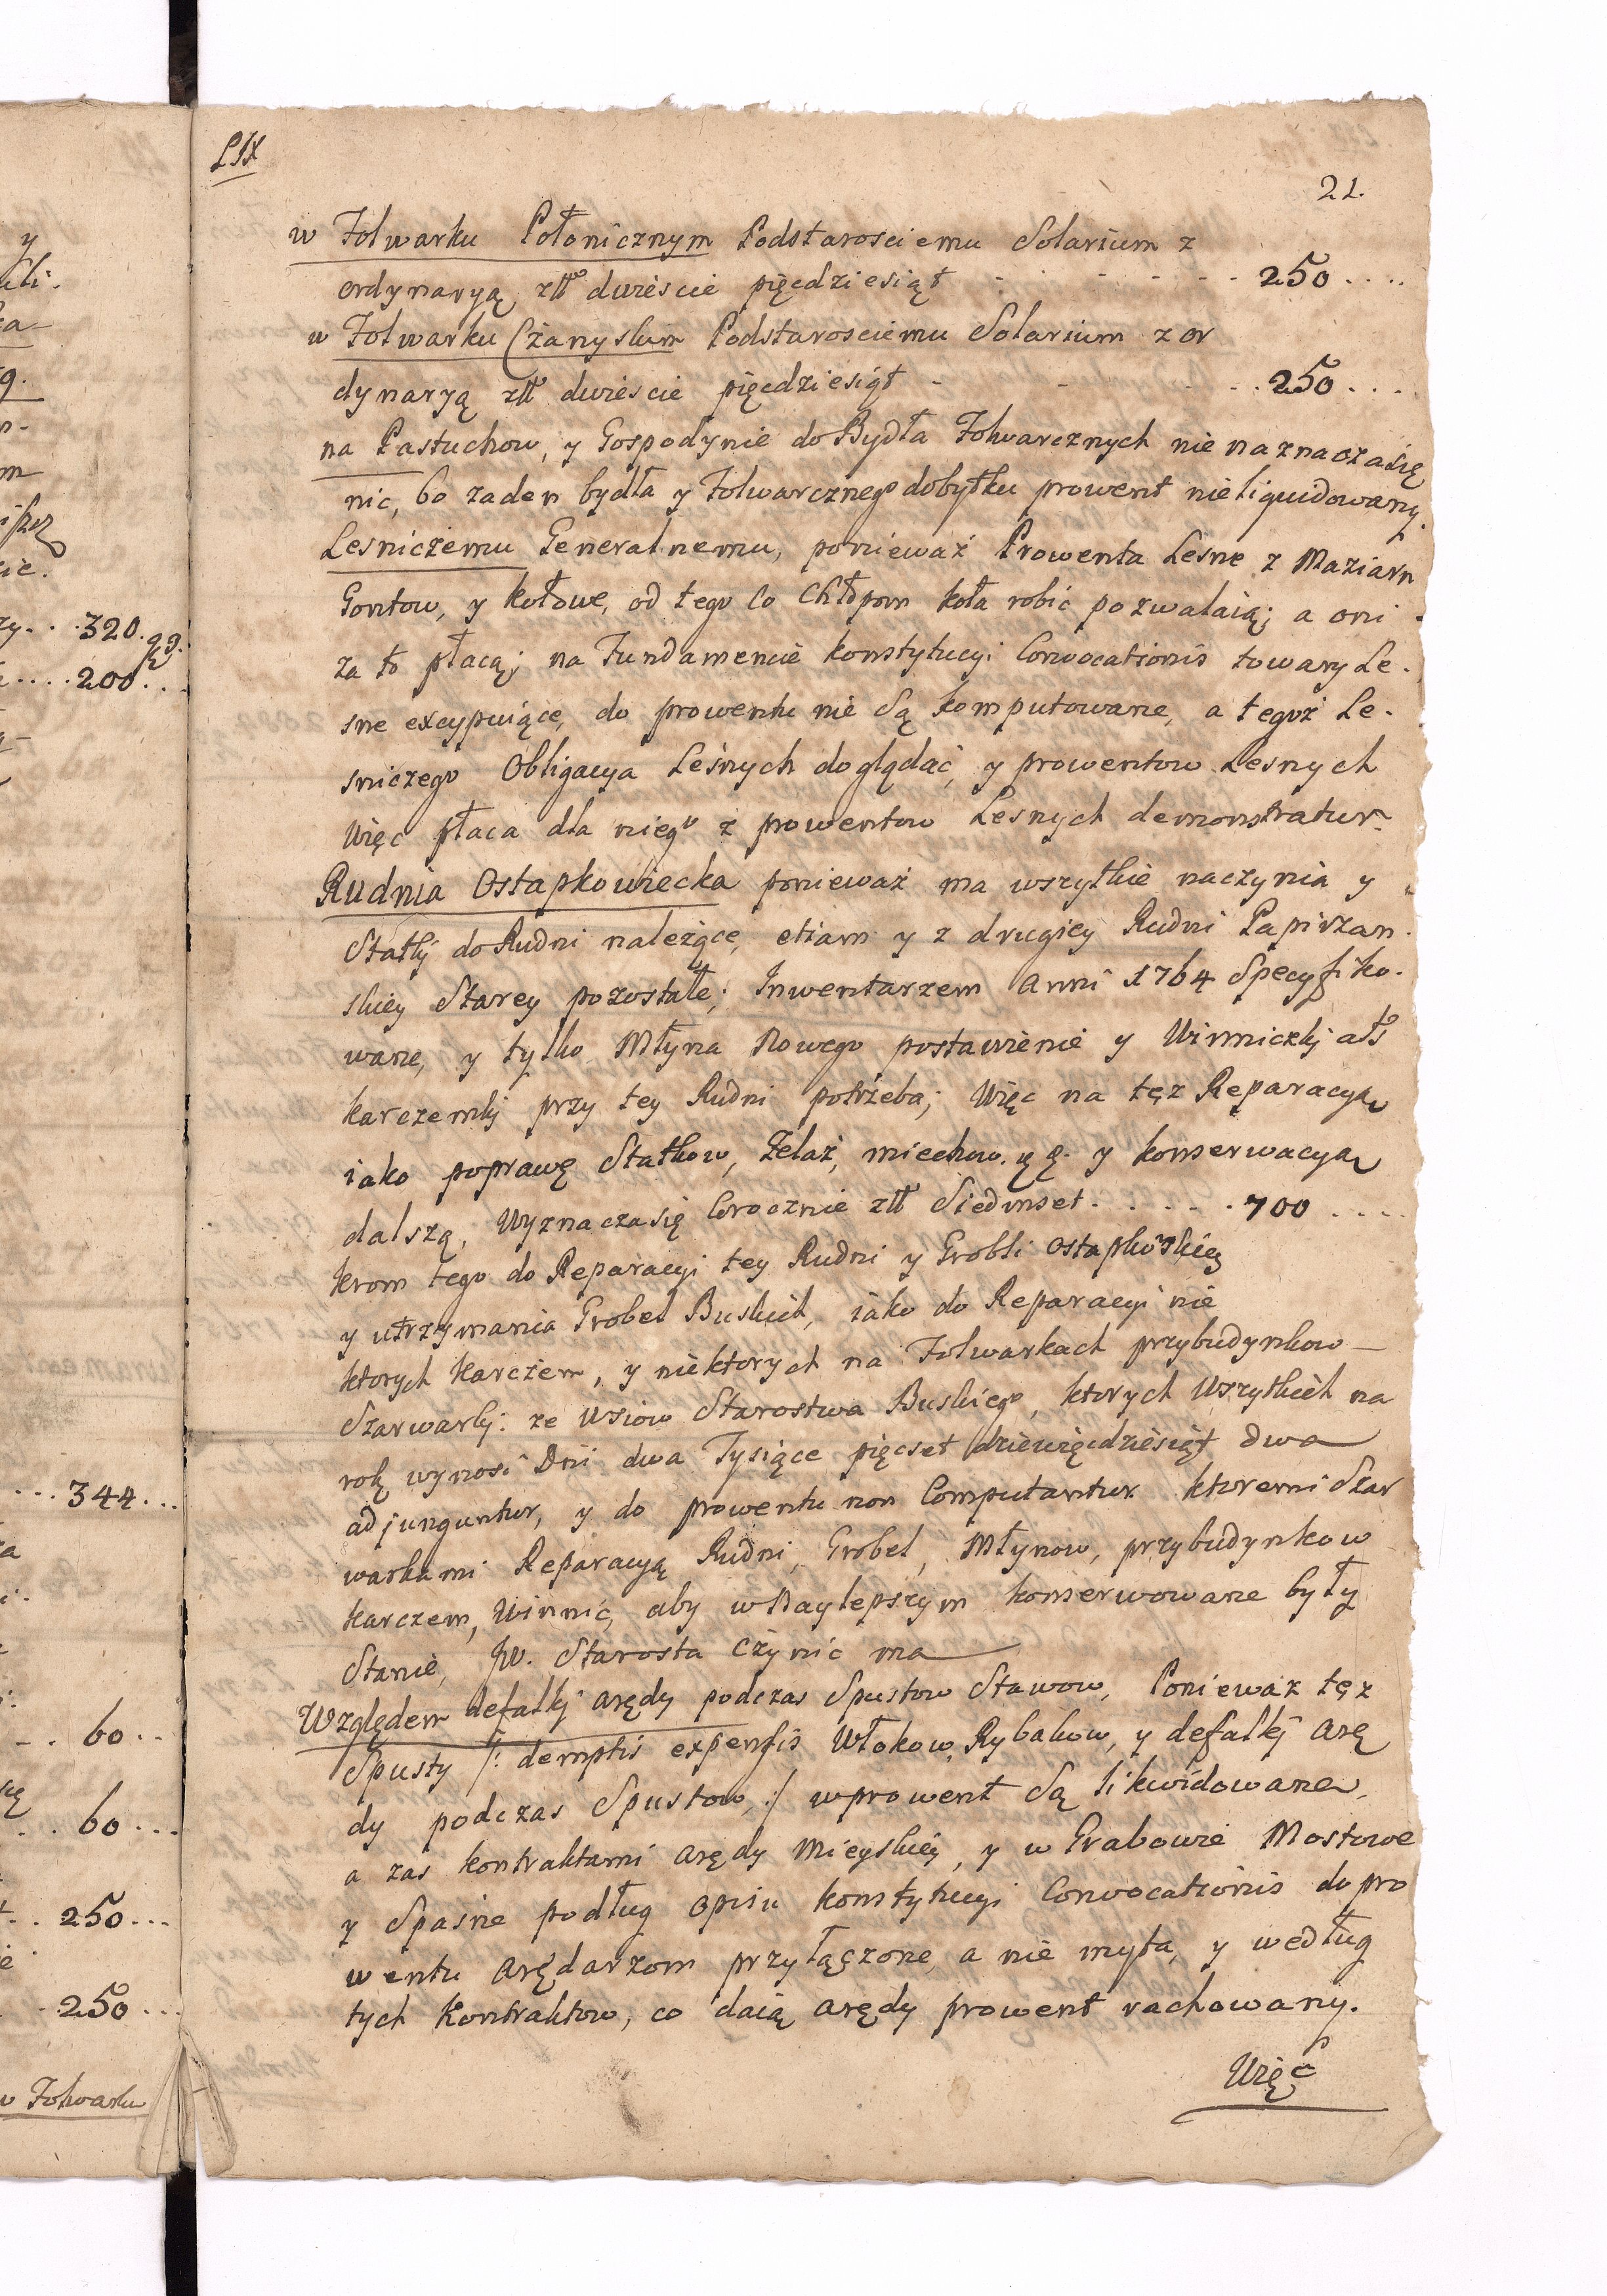 LIX
21.
w Folwarku Połonicznym Podstarosciemu Solarium z
ordynaryą złł dwiescie pięcdziesiąt - - - - - 250....
w Folwarku Czanyskim Podstarosciemu Solarium z or
dynaryą złł dwiescie pięcdziesiąt - - - - 250....
na Pastuchow, y Gospodynie do Bydła Folwarcznych nie naznacza się
nic, bo zaden bydła y Folwarcznego dobytku prowent nieliquidowany.
Lesniczemu Generalnemu, ponieważ Prowenta Lesne z Maziarn
Gontow, y kołowe, od tego co Chłopom koła robić pozwalaią; a oni
za to płacą; na Fundamencie konstytucyi Convocationis towary Le-
sne excypuiące, do prowentu nie są komputowane, a tegoż Le-
sniczego Obligacya Leśnych doglądać, y prowentow Lesnych
Więc płaca dla niego z prowentow Lesnych demonstratur.
Rudnia Ostapkowiecka ponieważ ma wszytkie naczynia y
Statki do Rudni należące, etiam y z drugiey Rudni Papirzan-
skiey Starey pozostałe; Inwentarzem Anni 1764 Specyfiko-
wane, y tylko Młyna Nowego postawienie y Winniczki ałō
karczemki przy tey Rudni potrzeba; Więc na tęz Reparacyą
iako poprawę Statkow, Żelaz, miechow. y konserwacyą
dalszą, Wyznacza się Corocznie złł Siedmset. . . . . . 700 ....
krom tego do Reparacyi tey Rudni y Grobli Ostapkowskiey
y utrzymania Grobel Buskich, iako do Reparacyi nie
ktorych karczem, y niektorych na Folwarkach przybudynkow
Szarwarki: ze Wsiow Starostwa Buskiego, ktorych Wszytkich na
rok wynosi Dni dwa Tysiące pięcset dziewięcdziesiąt dwa
adjunguntur, y do prowentu non Computantur. ktoremi Szar
warkami Reparacyą Rudni, Grobel, Młynow, przybudynkow
karczem, Winnic, aby w Naylepszym konserwowane były
Stanie, JW. Starosta czynic ma
Względem defalki arędy podczas Spustow Stawow, Ponieważ tęz
Spusty /: demptis expensis Włokow, Rybakow, y defalki arę
dy podczas Spustow, :/ w prowent są likwidowane,
a zas kontraktami arędy Mieyskiey, y w Grabowie Mostowe
y Spasne podług opisu konstytucyi Convocationis do pro
wentu arędarzom przyłączone, a nie myta, y według
tych kontraktow, co daią arędy prowent rachowany.
Więc
y
320.
200...
344...
60..
60...
250...
250...
w Folwarku